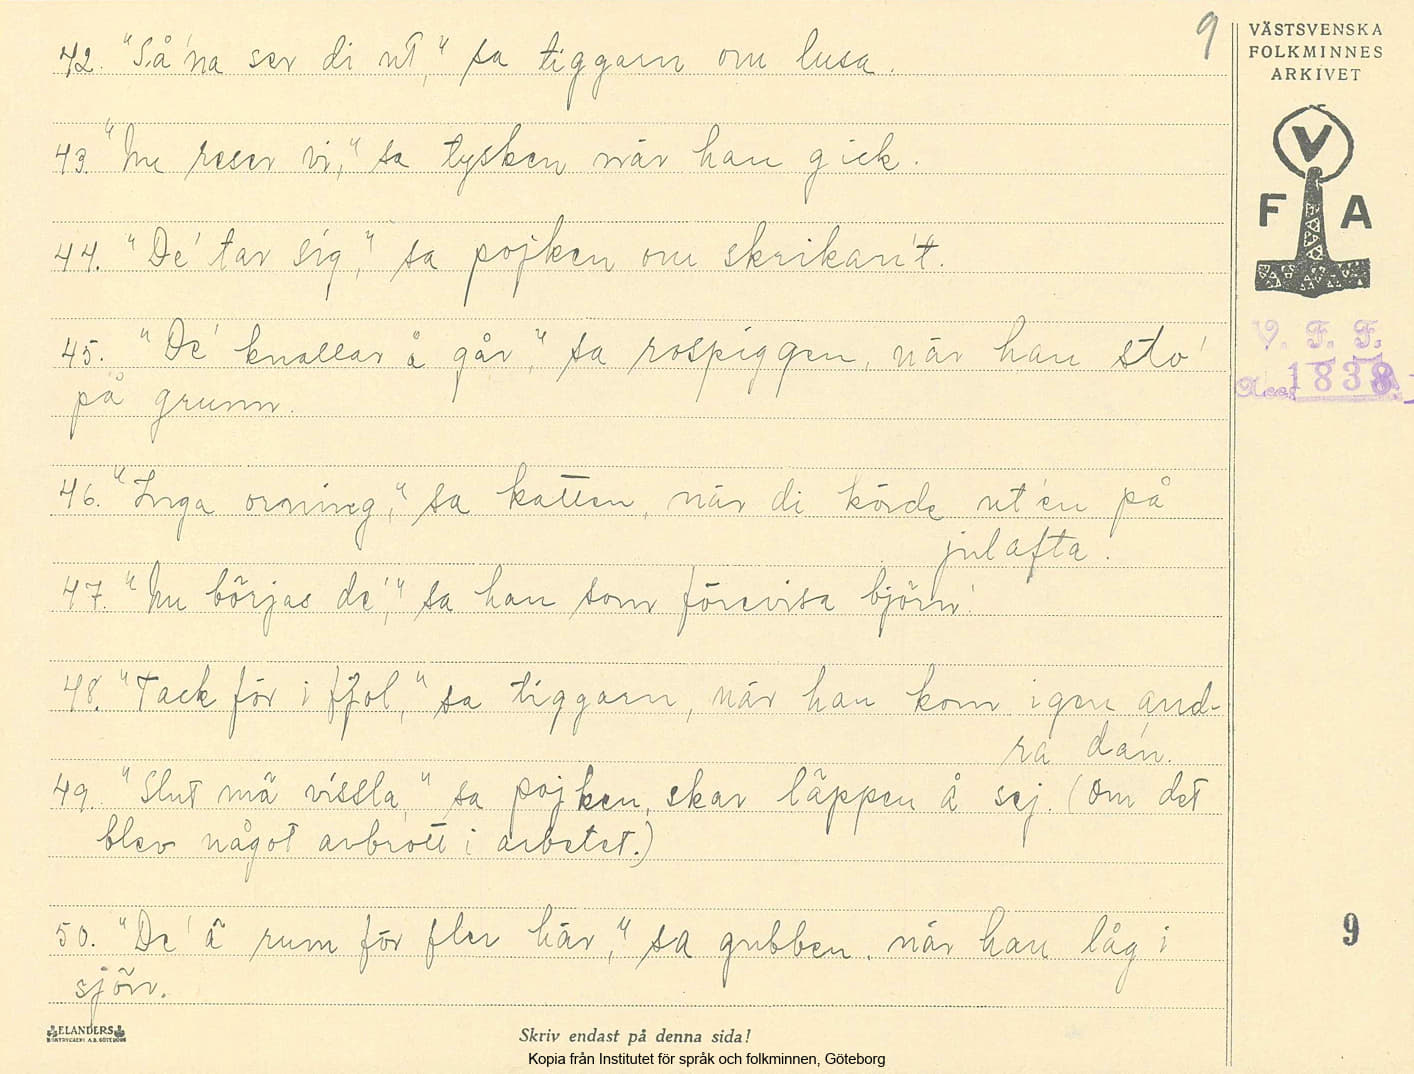 9
VÄSTSVENSKA
FOLKMINNES
ARKIVET
V
F A
V. F. F.
1838
42. "Så'na ser di ut," sa tiggarn om lusa.
43. "Nu reser vi," sa tysken när han gick.
44. "De' tar sig," sa pojken om skrikan't.
45. "De' knallar å går," sa rospiggen, när han sto'
på grunn.
46. "Inga ornineg," sa katten, när di körde ut'en på
julafta.
47. "Nu börjas de'," sa han som förevisa björn'.
48. "Tack för i fjol," sa tiggarn, när han kom igen and-
ra da'n.
49. "Slut mä vissla," sa pojken, skar läppen å sej. (Om det
blev något avbrott i arbetet.)
50. "De' ä rum för fler här," sa gubben, när han låg i
sjön.
9
ELANDERS
Skriv endast på denna sida!
Kopia från Institutet för språk och folkminnen, Göteborg